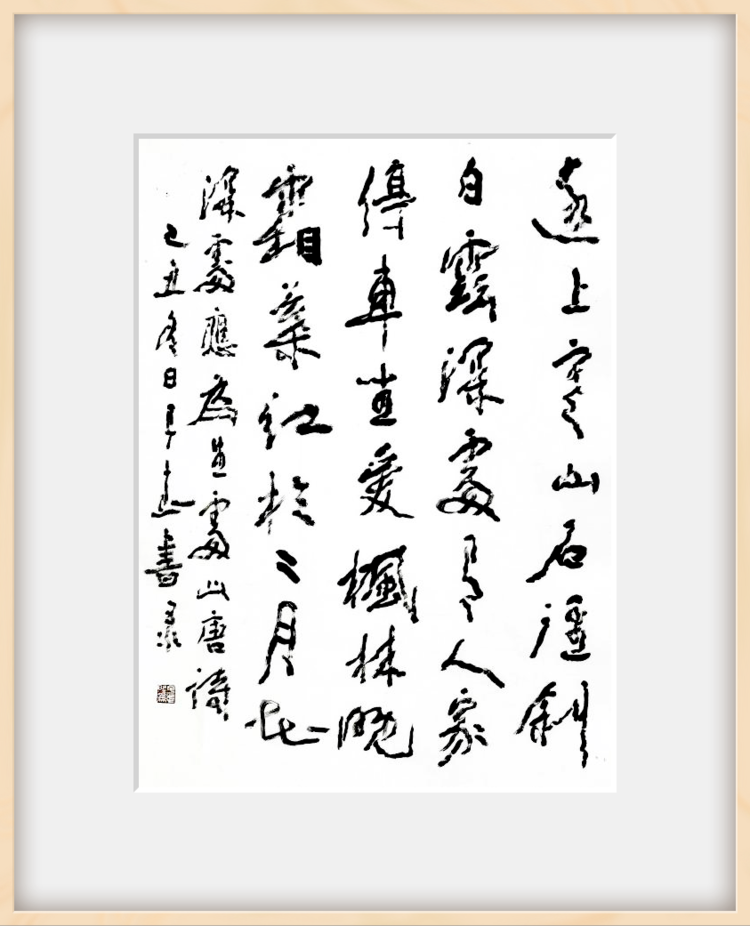 遠上寒山石徑斜
白雲深處有人家
停車坐愛楓林晚
霜葉紅於二月花
深處應為生處唐詩
己丑冬日書